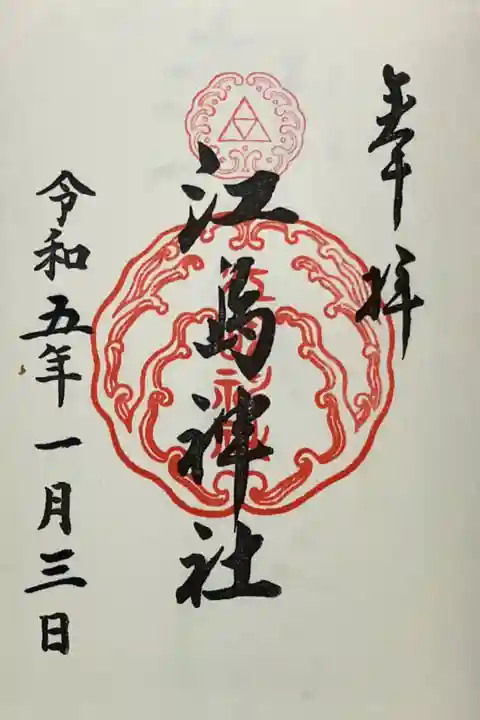 奉拝
江島神社
令和五年一月三日